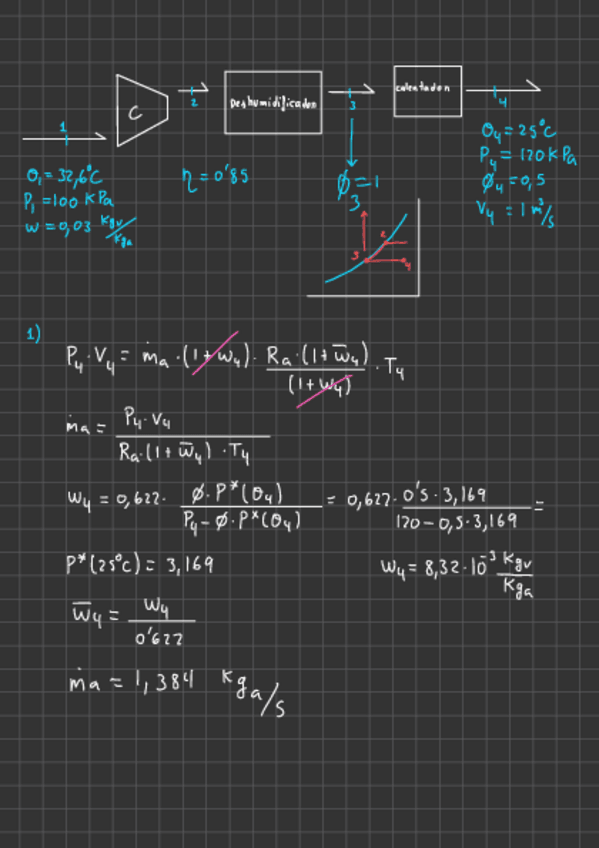 C
Deshumidificador
calentador
1
2
3
4
θ₁ = 32,6°C
P₁ = 100 KPa
w = 0,03 Kgv/Kga
η = 0'85
ϕ₃ = 1
θ₄ = 25°C
P₄ = 120 KPa
ϕ₄ = 0,5
V₄ = 1 m³/s
2
3
4
1)
P₄·V₄ = ṁa·(1+w₄)· Ra·(1+w̅₄)/(1+w₄) ·T₄
ṁa = P₄·V₄ / Ra·(1+w̅₄)·T₄
w₄ = 0,622· ϕ·P*(θ₄) / P₄-ϕ·P*(θ₄) = 0,622· 0'5·3,169 / 120-0,5·3,169 =
P*(25°C) = 3,169
w₄ = 8,32·10⁻³ Kgv/Kga
w̅₄ = w₄ / 0'622
ṁa = 1,384 Kga/s